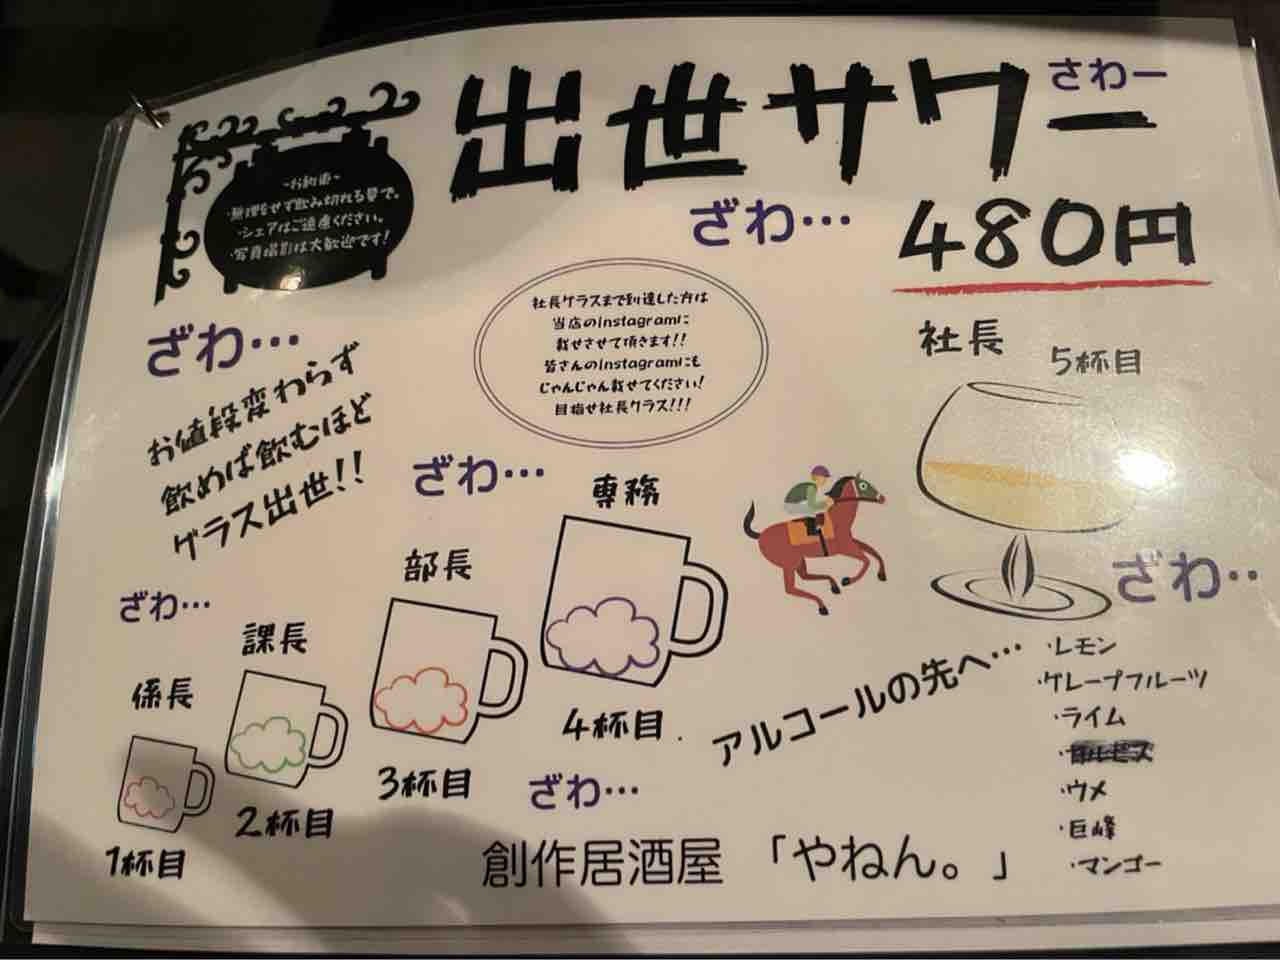 出世サワー
さわー
480円
~お約束~
・無理をせず飲み切れる量で。
・シェアはご遠慮ください。
・写真撮影は大歓迎です!
ざわ…
ざわ…
社長グラスまで到達した方は
当店のInstagramに
載せさせて頂きます!!
皆さんのInstagramにも
じゃんじゃん載せてください!
目指せ社長グラス!!!
お値段変わらず
飲めば飲むほど
グラス出世!!
社長
5杯目
ざわ…
専務
4杯目
部長
3杯目
ざわ…
課長
2杯目
係長
1杯目
ざわ‥
アルコールの先へ…
・レモン
・グレープフルーツ
・ライム
・ウメ
・巨峰
・マンゴー
ざわ…
創作居酒屋 「やねん。」